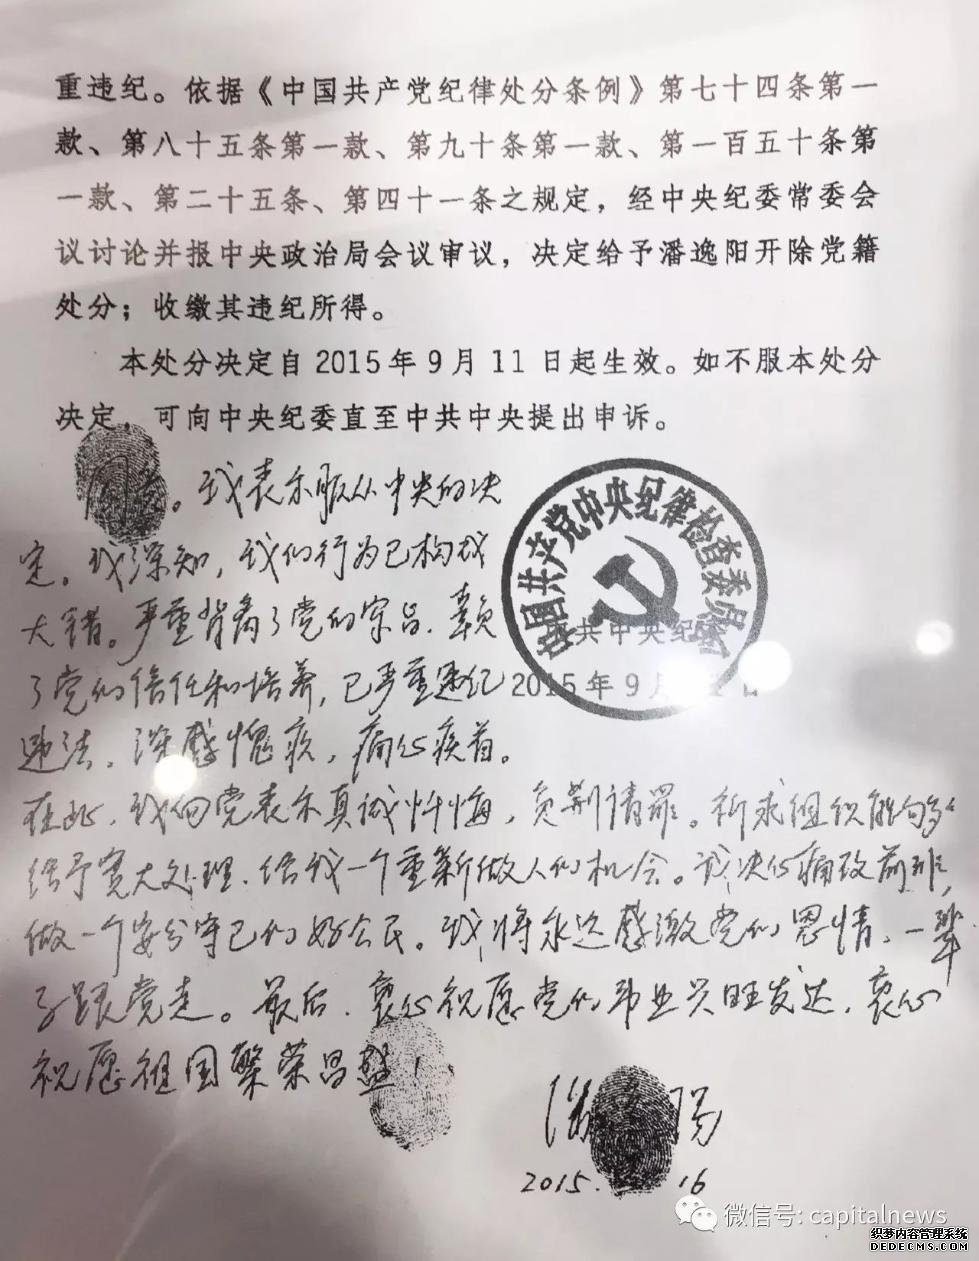 重违纪。依据《中国共产党纪律处分条例》第七十四条第一
款、第八十五条第一款、第九十条第一款、第一百五十条第
一款、第二十五条、第四十一条之规定，经中央纪委常委会
议讨论并报中央政治局会议审议，决定给予潘逸阳开除党籍
处分；收缴其违纪所得。
本处分决定自2015年9月11日起生效。如不服本处分
决定，可向中央纪委直至中共中央提出申诉。
同意。我表示服从中央的决
定。我深知，我的行为已构成
大错。严重背离了党的宗旨、辜负
了党的信任和培养，已严重违纪
违法，深感愧疚，痛心疾首。
中国共产党中央纪律检查委员会
共中央纪
2015年9月 日
在此，我向党表示真诚忏悔，负荆请罪。祈求组织能够
给予宽大处理，给我一个重新做人的机会。我决心痛改前非，
做一个安分守己的好公民。我将永远感激党的恩情，一辈
子跟党走。最后，衷心祝愿党的事业兴旺发达，衷心
祝愿祖国繁荣昌盛！
潘 阳
2015. 16
微信号: capitalnews
织梦内容管理系统
DEDECMS.COM